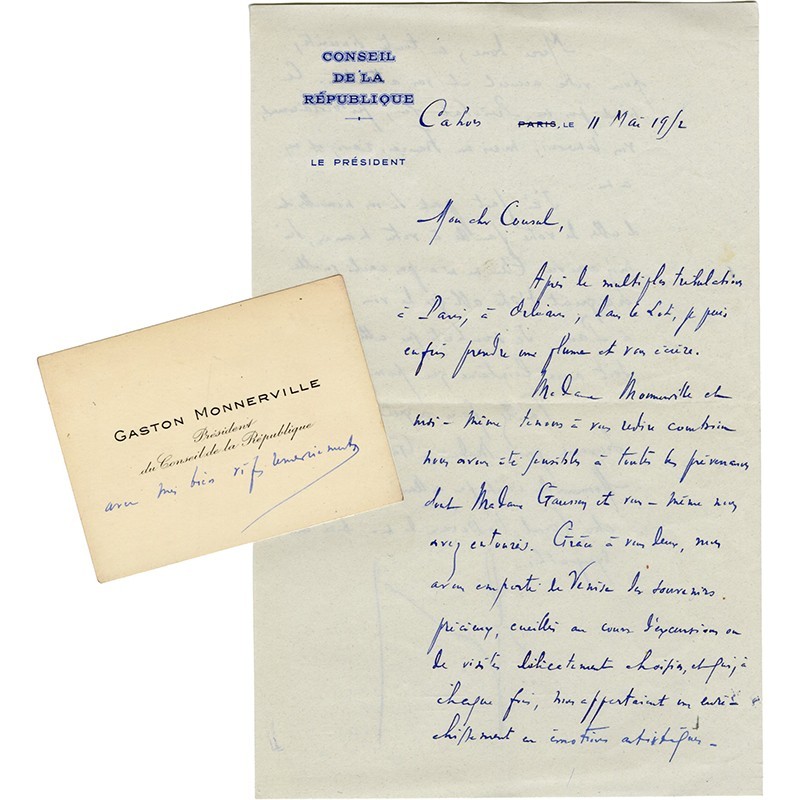 CONSEIL
DE LA
RÉPUBLIQUE
LE PRÉSIDENT
Cahors PARIS, LE 11 Mai 1952
Mon cher Consul,
Après de multiples tribulations
à Paris, à Orléans, dans le Lot, je puis
enfin prendre une plume et vous écrire.
Madame Monnerville et
moi-même tenons à vous redire combien
nous avons été sensibles à toutes les prévenances
dont Madame et vous-même nous
avez entourés. Grâce à vous deux, nous
avons emporté de Venise des souvenirs
précieux, cueillis au cours d'excursions ou
de visites délicatement choisies, et qui, à
chaque fois, nous apportaient un enri-
chissement en émotions artistiques-
GASTON MONNERVILLE
Président
du Conseil de la République
avec mes bien vifs remerciements